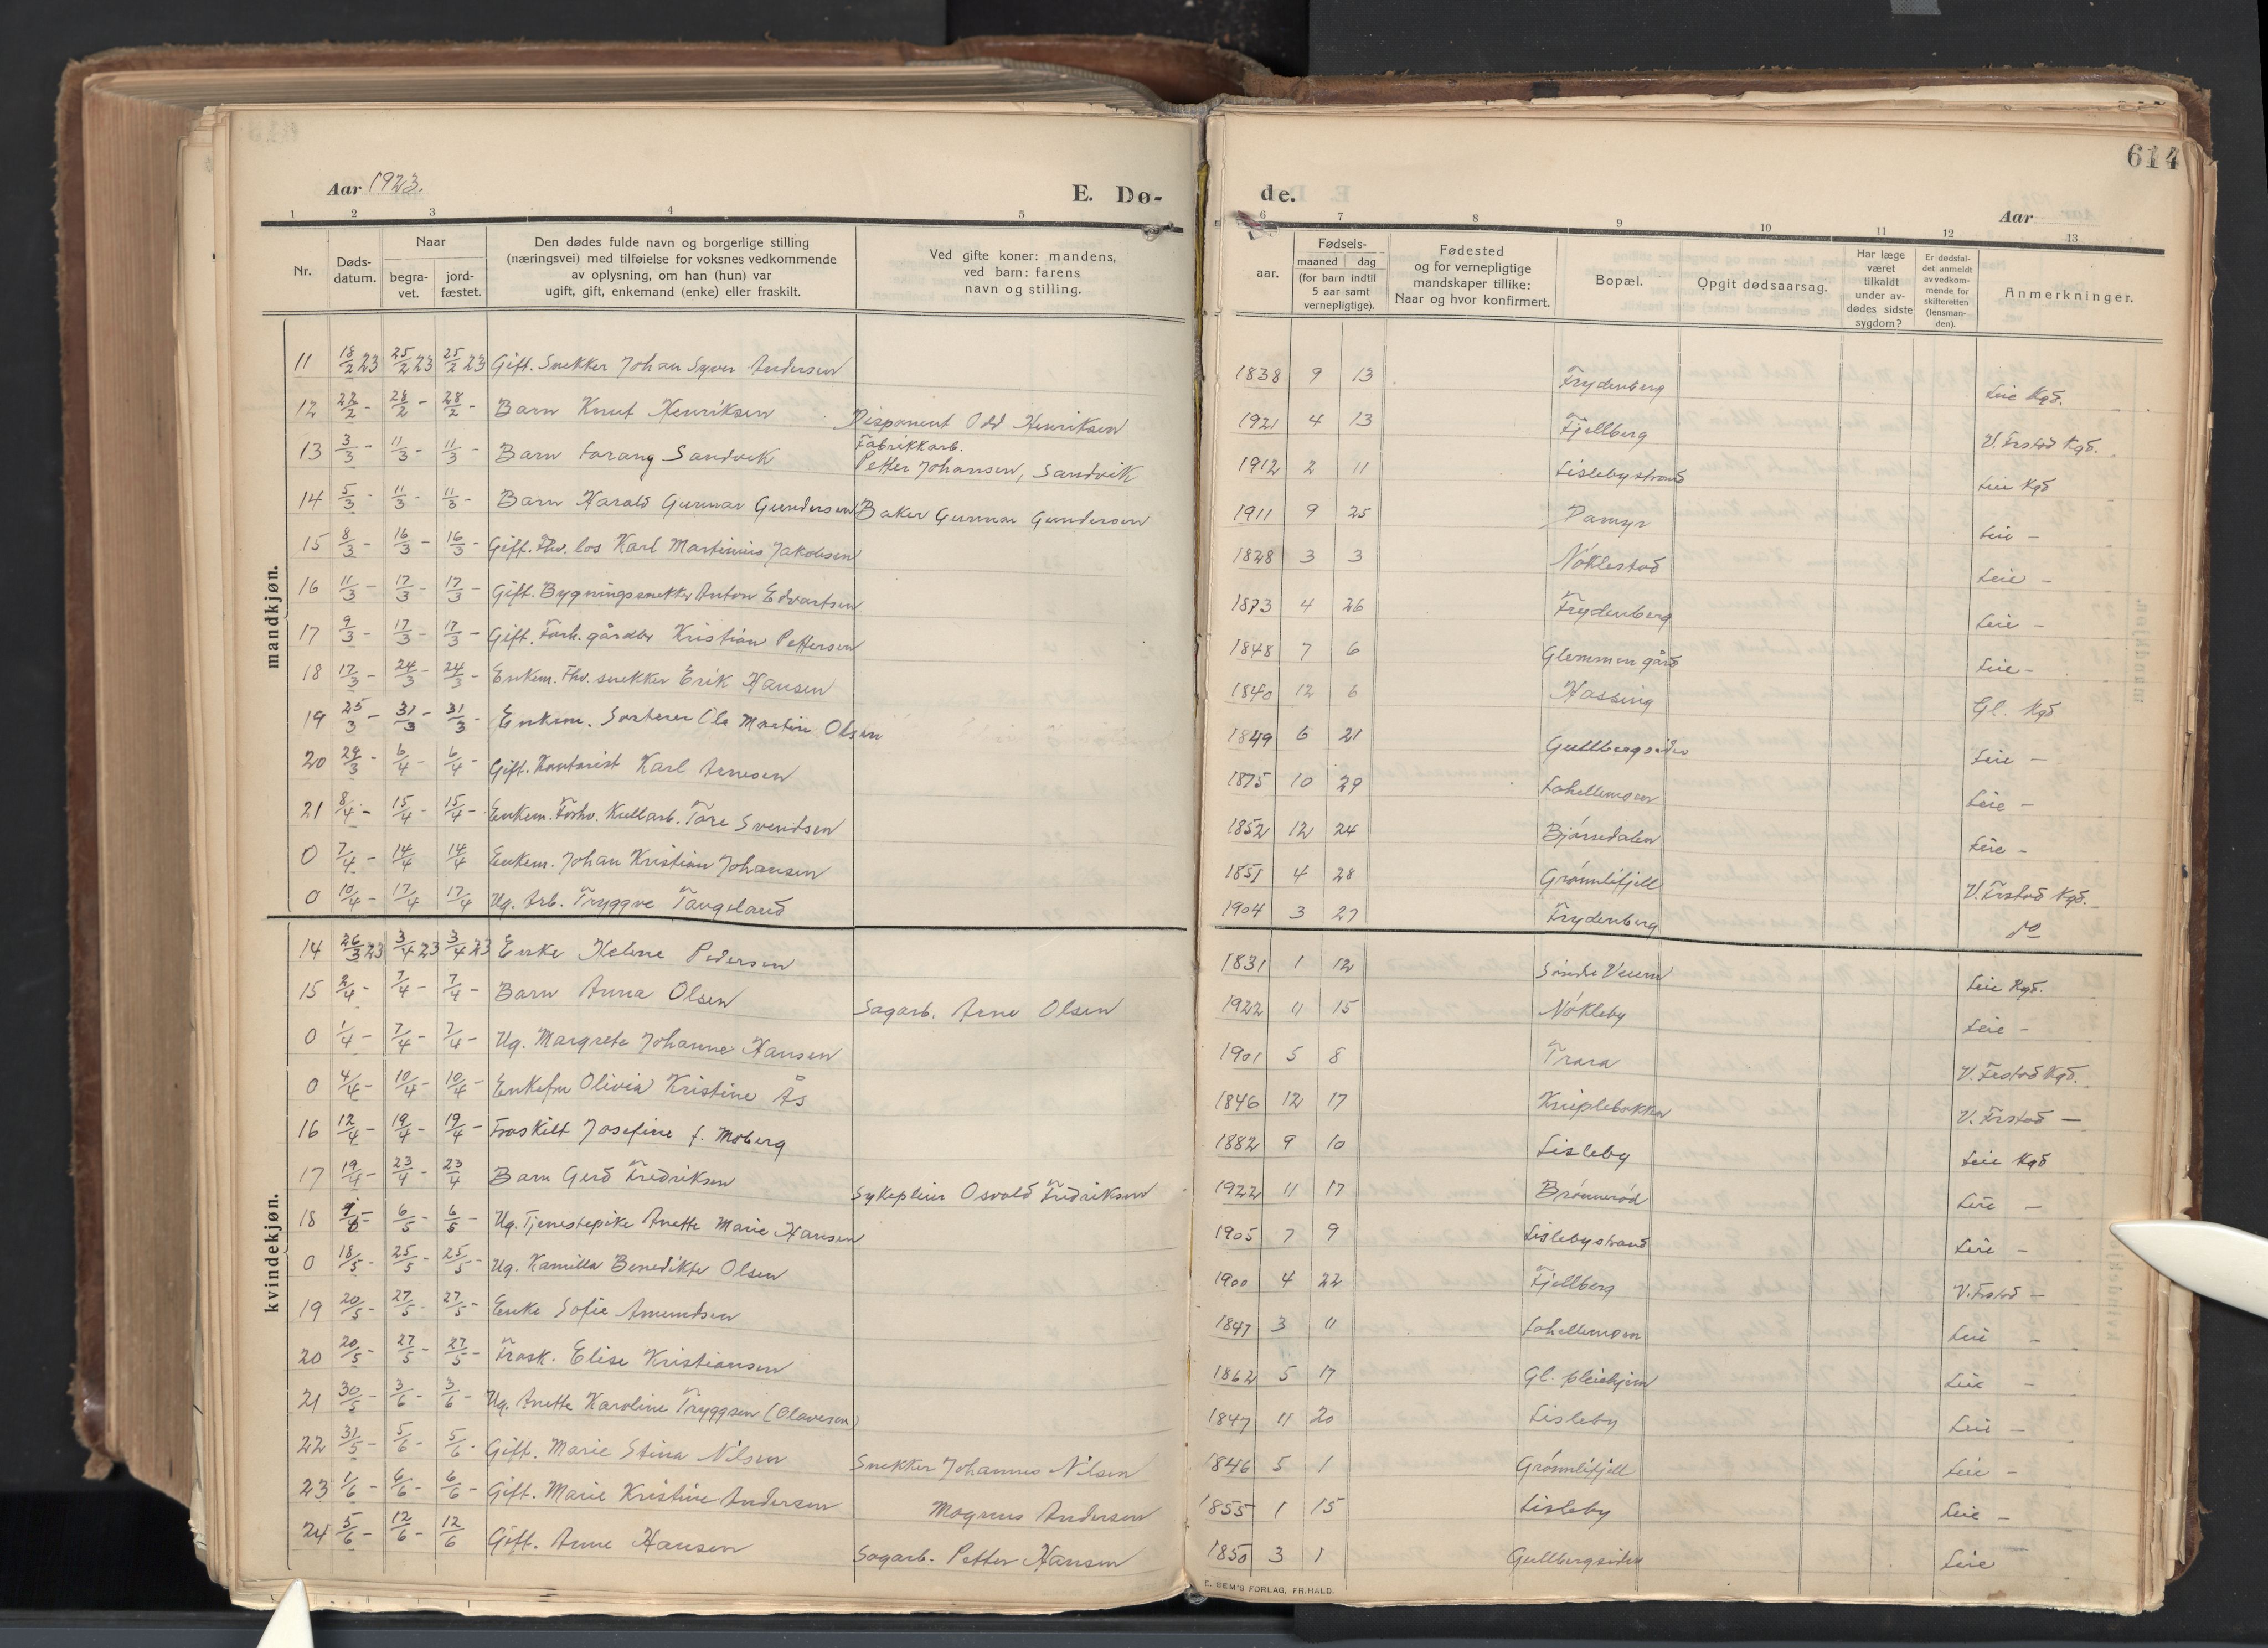 614
Aar 1923.
E. Dø-
de.
Aar
1 2 3 4 5
6 7 8 9 10 11 12 13
Nr.
Døds-
datum.
Naar
begra-
vet.
jord-
fæstet.
Den dødes fulde navn og borgerlige stilling
(næringsvei) med tilføielse for voksnes vedkommende
av oplysning, om han (hun) var
ugift, gift, enkemand (enke) eller fraskilt.
Ved gifte koner: mandens,
ved barn: farens
navn og stilling.
aar.
Fødsels-
maaned dag
(for barn indtil
5 aar samt
vernepligtige).
Fødested
og for vernepligtige
mandskaper tillike:
Naar og hvor konfirmert.
Bopæl.
Opgit dødsaarsag.
Har læge
været
tilkaldt
under av-
dødes sidste
sygdom?
Er dødsfal-
det anmeldt
av vedkom-
mende for
skifteretten
(lensman-
den).
Anmerkninger.
mandkjøn.
11 18/2 23 25/2 23 25/2 23 Gift. Snekker Johan Syver Andersen 1838 9 13 Frydenberg Leie Kgd.
12 22/2 - 28/2 - 28/2 - Barn Knut Henriksen Disponent Odd Henriksen 1921 4 13 Fjellberg V. Frstad Kgd.
13 3/3 - 11/3 - 11/3 - Barn Sandvik Fabrikkarb. Petter Johansen, Sandvik 1912 2 11 Lislebystrand Leie Kgd
14 5/3 - 11/3 - 11/3 - Barn Harald Gunnar Gundersen Baker Gunnar Gundersen 1911 9 25 Pamyr Leie -
15 8/3 - 16/3 - 16/3 - Gift. Fhv. los Karl Martinius Jakobsen 1828 3 3 Nøklestad Leie -
16 11/3 - 17/3 - 17/3 - Gift. Bygningssnekker Anton Edvartsen 1873 4 26 Frydenberg Leie -
17 9/3 - 17/3 - 17/3 - Gift. Forh. gårdbr Kristian Pettersen 1848 7 6 Glemmen gård Leie -
18 17/3 - 24/3 - 24/3 - Enkem. Fhv. snekker Erik Hansen 1840 12 6 Hassing Gl. Kgd
19 25/3 - 31/3 - 31/3 - Enkem. Sorterer Ole Martin Olsen 1849 6 21 Gullbergsiden Leie -
20 29/3 - 6/4 - 6/4 - Gift. Kontorist Karl Arnesen 1875 10 29 Lahellemoen Leie -
21 8/4 - 15/4 - 15/4 - Enkem. Forhv. Kullarb. Tore Svendsen 1852 12 24 Bjørndalen Leie -
0 7/4 - 14/4 14/4 Enkem. Johan Kristian Johansen 1851 4 28 Grønnlifjell V. Frstad Kgd.
0 10/4 - 17/4 17/4 Ug. Arb. Tryggve Tangeland 1904 3 27 Frydenberg do
kvindekjøn.
14 26/3 23 3/4 23 3/4 23 Enke Helene Pedersen 1831 1 12 Søndre Veum Leie Kgd.
15 2/4 - 7/4 - 7/4 - Barn Anna Olsen Sagarb. Arne Olsen 1922 11 15 Nøkleby Leie -
0 1/4 - 7/4 - 7/4 - Ug. Margrete Johanne Hansen 1901 5 8 Trara V. Frstad Kgd.
0 4/4 - 10/4 - 10/4 - Enkefru Olivia Kristine Ås 1846 12 17 Kniplebakken V. Frstad -
16 12/4 - 19/4 - 19/4 - Fraskilt Josefine f. Moberg 1882 9 10 Lisleby Leie Kgd
17 19/4 - 23/4 - 23/4 Barn Gerd Fredriksen Sykepleier Osvald Fredriksen 1922 11 17 Brønnerød Leie -
18 6/5 - 6/5 - Ug. Tjenestepike Anette Marie Hansen 1905 7 9 Lislebystrand Leie -
0 18/5 - 25/5 - 25/5 - Ug. Kamilla Benedikte Olsen 1900 4 22 Fjellberg V. Frstad -
19 20/5 - 27/5 - 27/5 - Enke Sofie Amundsen 1847 3 11 Lahellemoen Leie -
20 20/5 - 27/5 - 27/5 - Frask. Elise Kristiansen 1862 5 17 Gl. pleiehjem Leie -
21 30/5 - 3/6 - 3/6 - Ug. Anette Karoline Tryggsen (Olavesen) 1847 11 20 Lisleby Leie -
22 31/5 - 5/6 - 5/6 - Gift. Marie Stina Nilsen Snekker Johannes Nilsen 1846 5 1 Grønnlifjell Leie -
23 1/6 - 6/6 - 6/6 - Gift. Marie Kristine Andersen Magnus Andersen 1855 1 15 Lisleby Leie -
24 5/6 - 12/6 - 12/6 Gift. Anne Hansen Sagarb. Petter Hansen 1850 3 1 Gullbergsiden Leie
E. SEM'S FORLAG, FR.HALD.